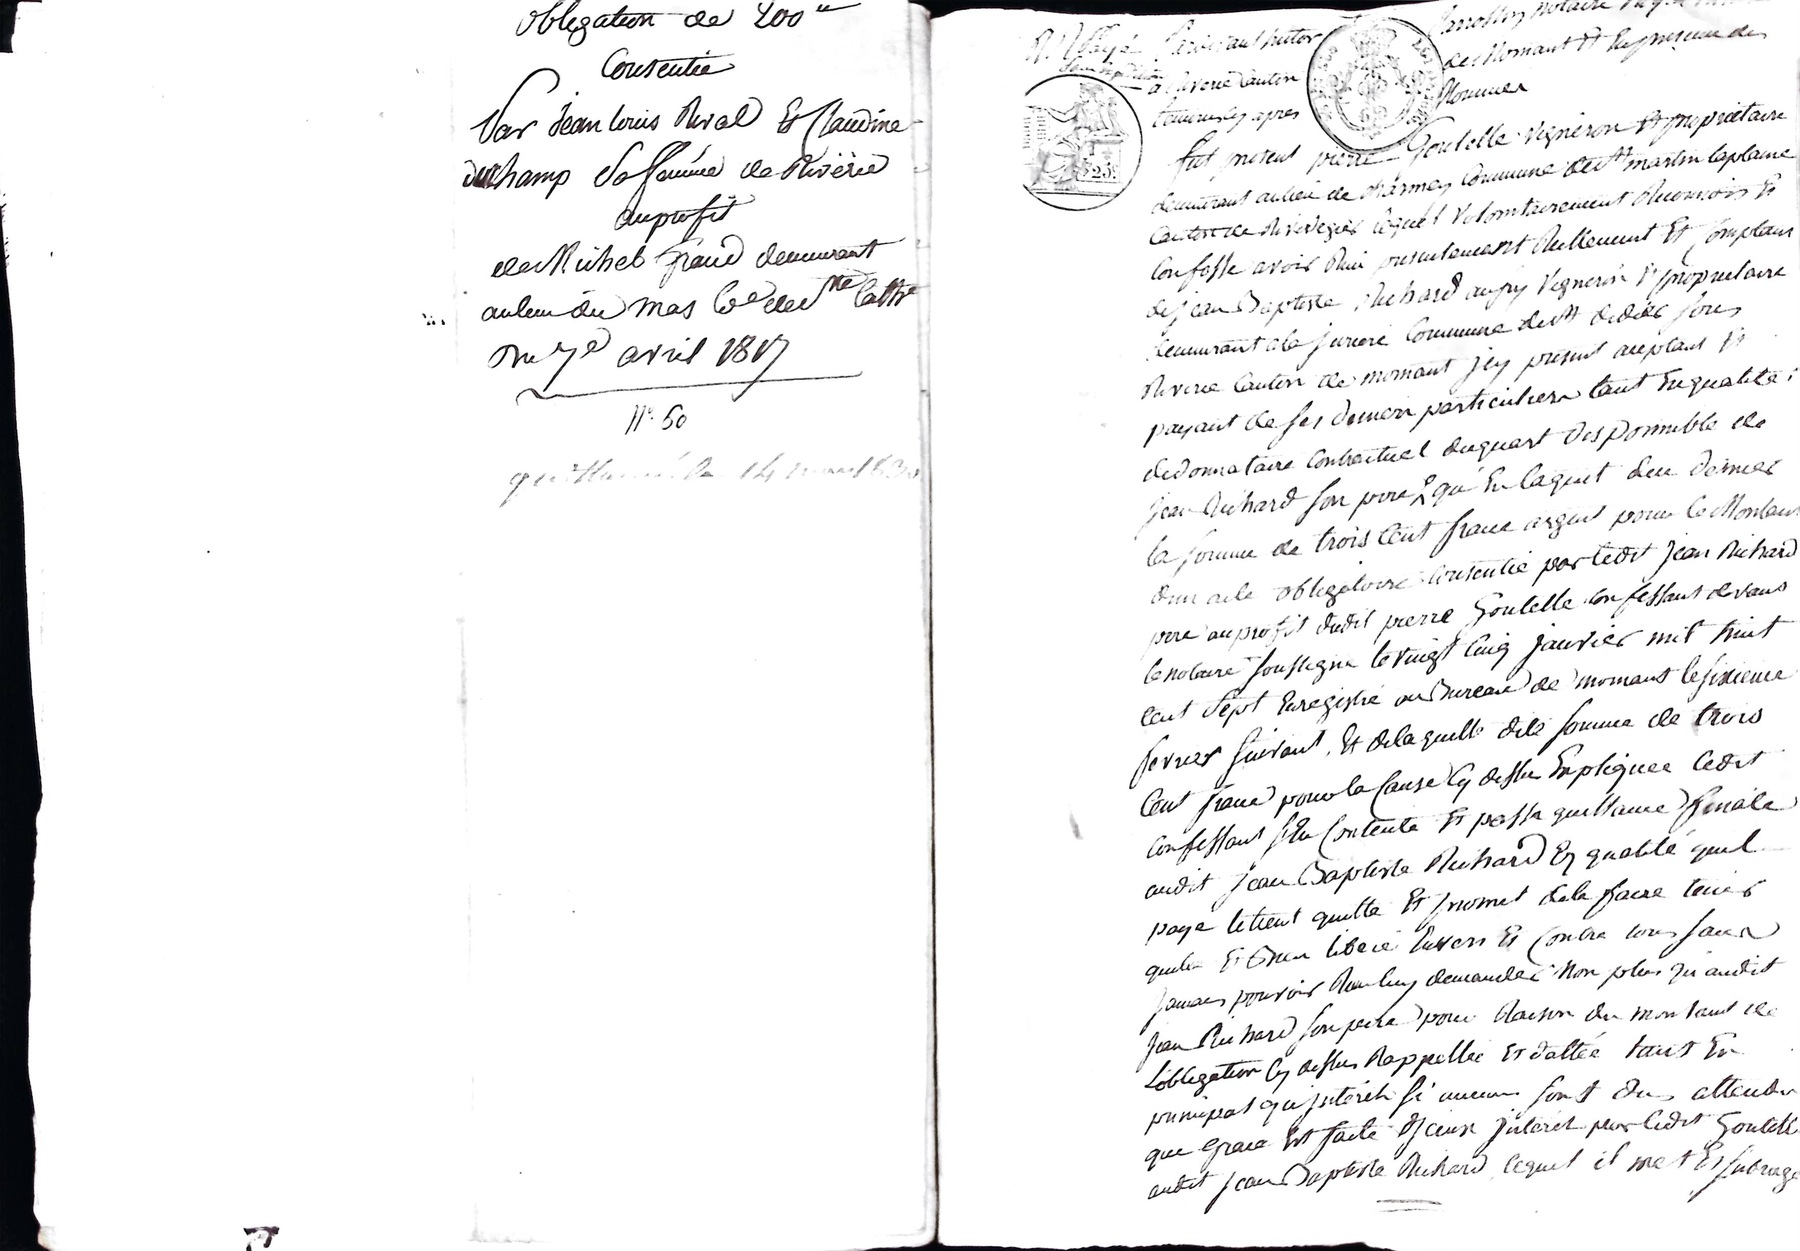 Obligation de 200tt
Consentie
Par Jean Louis Rival Et Claudine
duchamp Sa femme de Riverie
au profit
de Michel demeurant
au lieu du mas Cne de Ste Cathe
Du 7e avril 1817
N°. 50
quittancé le 14
notaire
de Mornant Et En presence des
a Riverie Canton
temoins cy apres Nommes
fut present pierre Goutelle vigneron Et proprietaire
demeurant au lieu de Commune de st martin laplaine
Canton de Rivedegier lequel volontairement Reconnois Et
Confesse avoir Recu presentement Reellement Et Comptant
de jean Baptiste Richard aussy vigneron Et proprietaire
demeurant a la Commune de st didier sous
Riverie Canton de mornant icy present acceptant Et
payant de ses deniers particuliers tant En qualité
de donnataire Contractuel du quart disponnible de
jean Richard son pere qu'En l'aquit de ce dernier
la somme de trois Cent franc argent pour le Montant
d'un acte obligatoire Consentie par ledit jean Richard
pere au profit dudit pierre Goutelle Confessant devant
le notaire soussigne le vingt Cinq janvier mil huit
Cent Sept Enregistré au Bureau de mornant le sixieme
fevrier suivant, Et de laquelle dite somme de trois
Cent franc pour la Cause Cy dessus Expliquee ledit
Confessant s'En Contente Et passe quittance finale
audit jean Baptiste Richard En qualité quil
paye le tient quitte Et promet de le faire tenir
quitte Et libere Envers Et Contre tous sans
jamais pouvoir Rien luy demander Non plus qu'audit
jean Richard son pere pour Raison du montant de
L'obligation Cy dessus Rappellée Et dattée tant En
principal qu'interet si aucuns sont dus attendu
que grace Est faite d'iceux interet par ledit Goutelle
audit jean Baptiste Richard lequel il met Et subroge